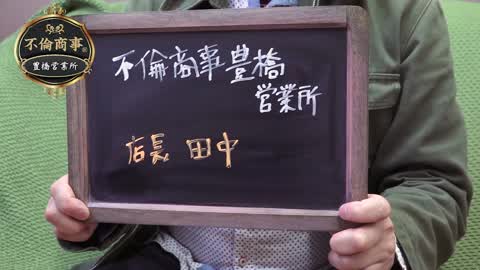 不倫商事
豊橋営業所
不倫商事豊橋
営業所
店長 田中